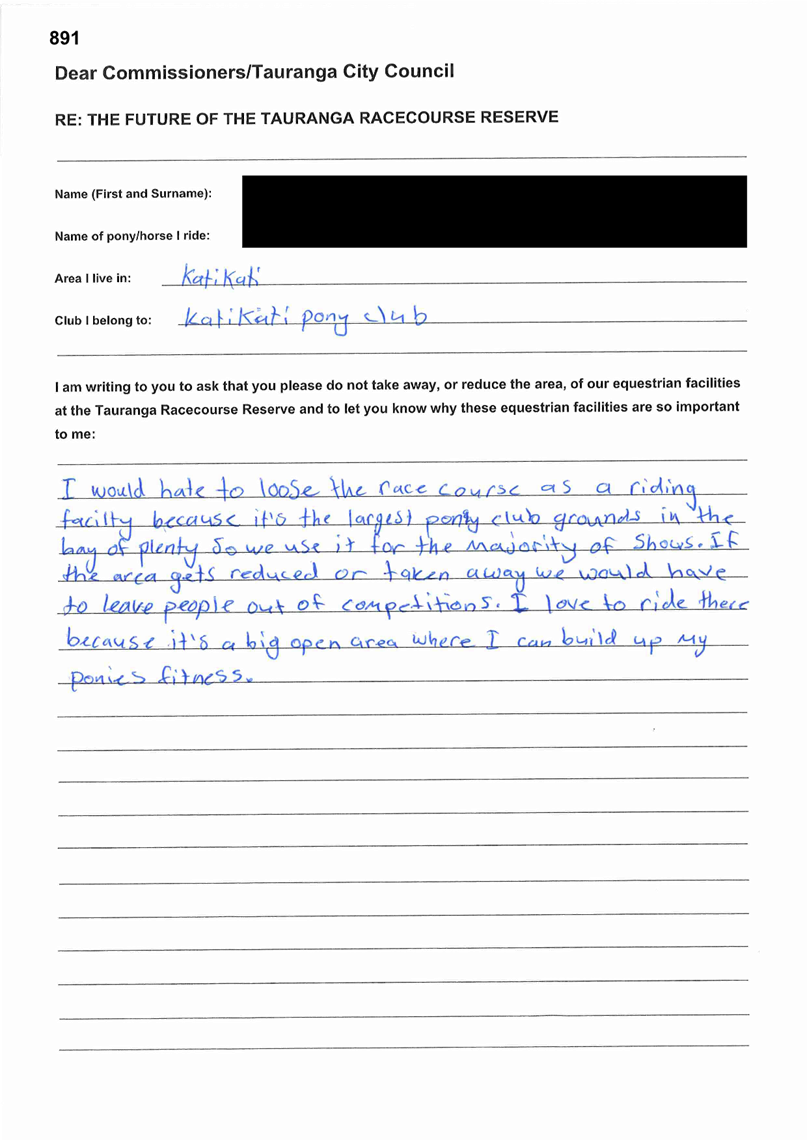 891
Dear Commissioners/Tauranga City Council
RE: THE FUTURE OF THE TAURANGA RACECOURSE RESERVE
Name (First and Surname):
Name of pony/horse I ride:
Area I live in: Katikati
Club I belong to: Katikati pony club
I am writing to you to ask that you please do not take away, or reduce the area, of our equestrian facilities
at the Tauranga Racecourse Reserve and to let you know why these equestrian facilities are so important
to me:
I would hate to loose the race course as a riding
facilty because it's the largest pony club grounds in the
bay of plenty so we use it for the majority of shows. If
the area gets reduced or taken away we would have
to leave people out of competitions. I love to ride there
because it's a big open area where I can build up my
ponies fitness.